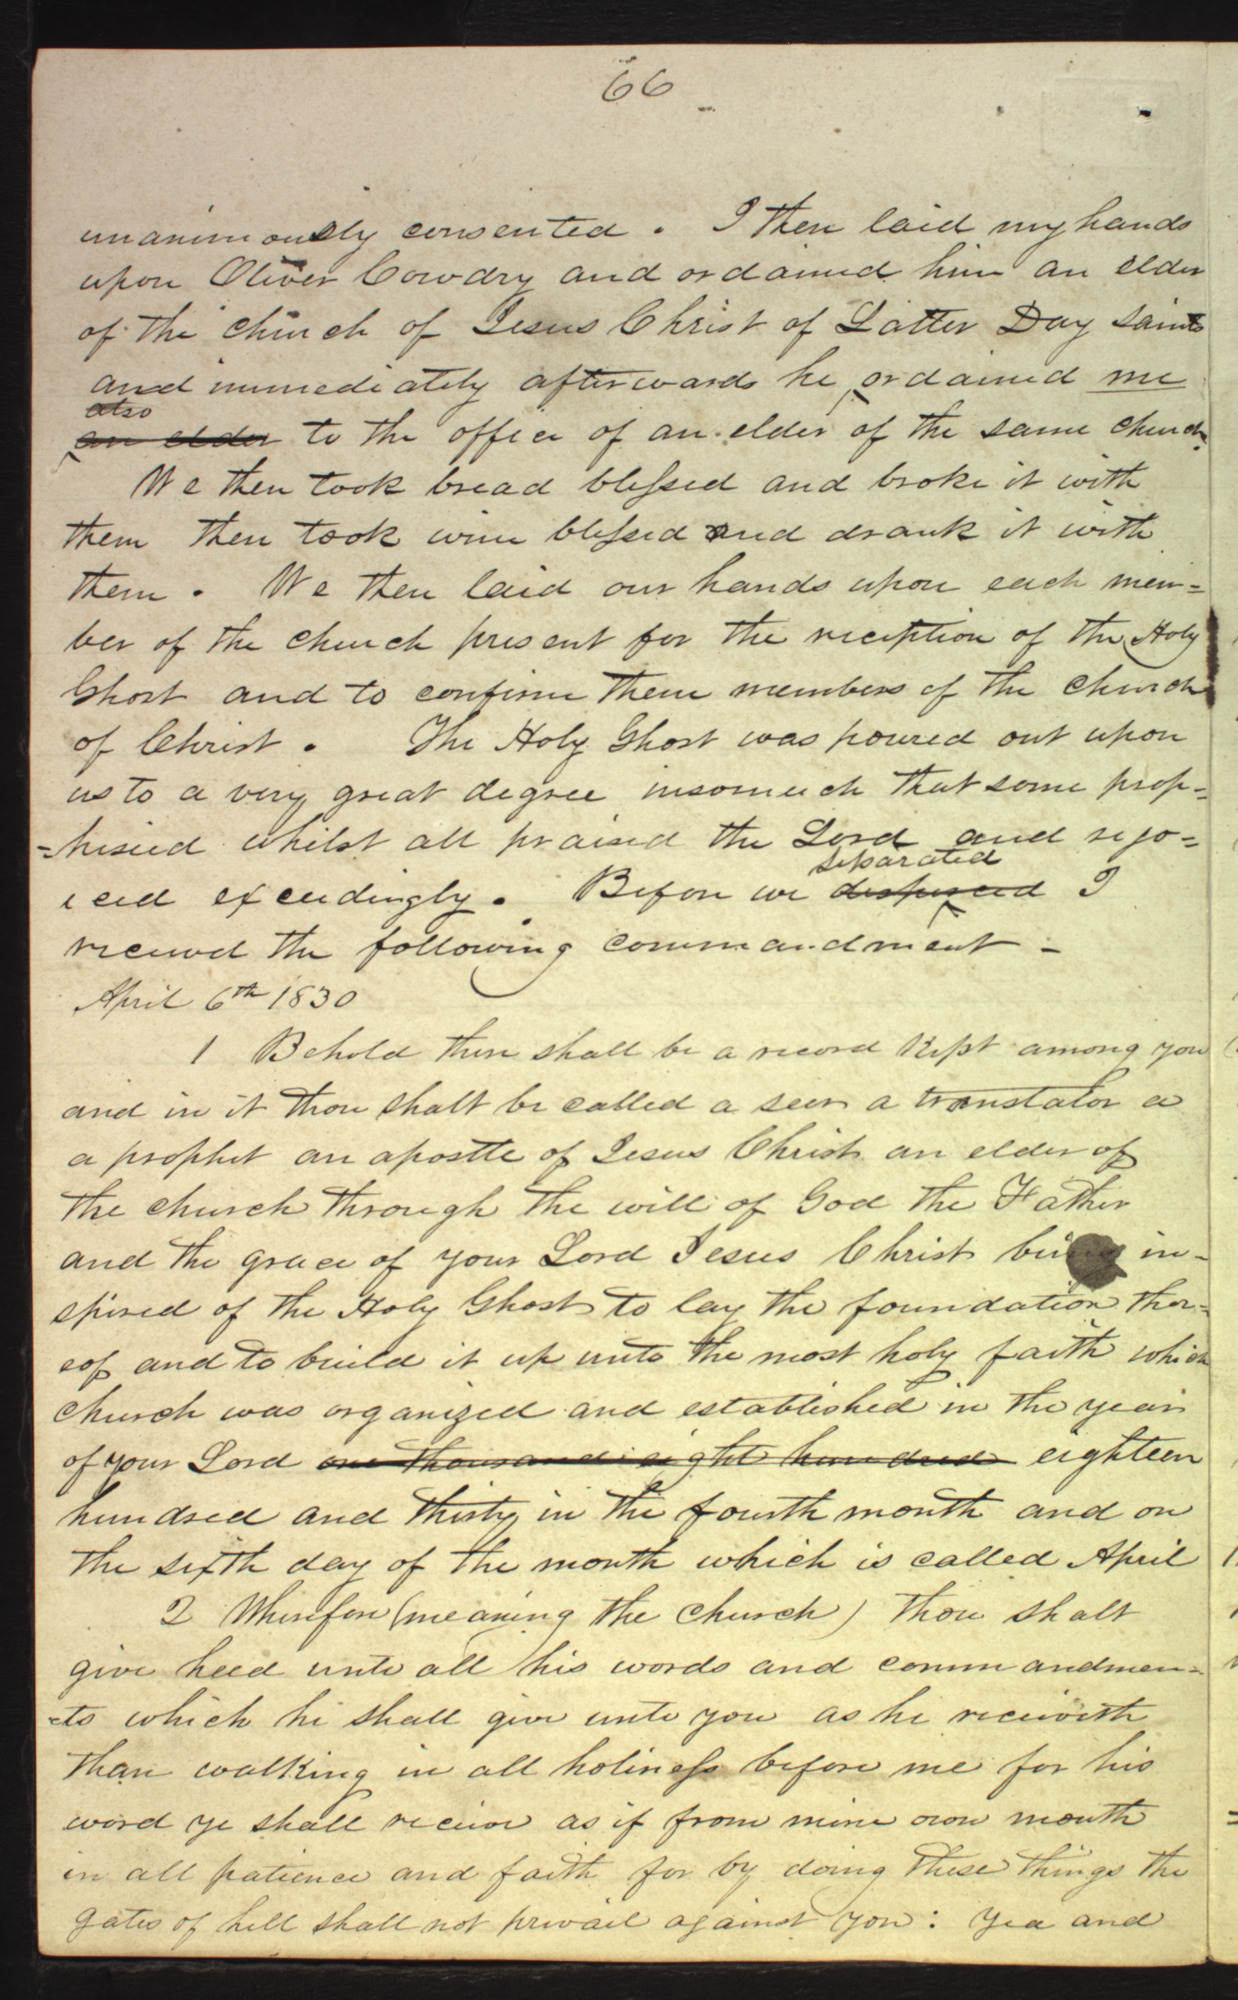 66
unanimously consented. I then laid my hands
upon Oliver Cowdry and ordained him an elder
of the church of Jesus Christ of Latter Day saints
and immediately afterwards he ordained me
also
an elder to the office of an elder of the same church.
We then took bread blessed and broke it with
them then took wine blessed and drank it with
them. We then laid our hands upon each mem=
ber of the church present for the reception of the Holy
Ghost and to confirm them members of the church
of Christ. The Holy Ghost was poured out upon
us to a very great degree insomuch that some prop=
=hisied whilst all praised the Lord and rejo=
separated
iced exceedingly. Before we dispersed I
received the following commandment -
April 6th 1830
1 Behold there shall be a record kept among you
and in it thou shalt be called a seer a translator a
a prophet an apostle of Jesus Christ an elder of
the church through the will of God the Father
and the grace of your Lord Jesus Christ being in=
spired of the Holy Ghost to lay the foundation ther=
eof and to build it up unto the most holy faith which
church was organized and established in the year
of your Lord one thousand eight hundred eighteen
hundred and thirty in the fourth month and on
the sixth day of the month which is called April
2 Wherefore (meaning the church) thou shalt
give heed unto all his words and commandmen=
=ts which he shall give unto you as he receiveth
than walking in all holiness before me for his
word ye shall receive as if from mine own mouth
in all patience and faith for by doing these things the
gates of hell shall not prevail against you: yea and